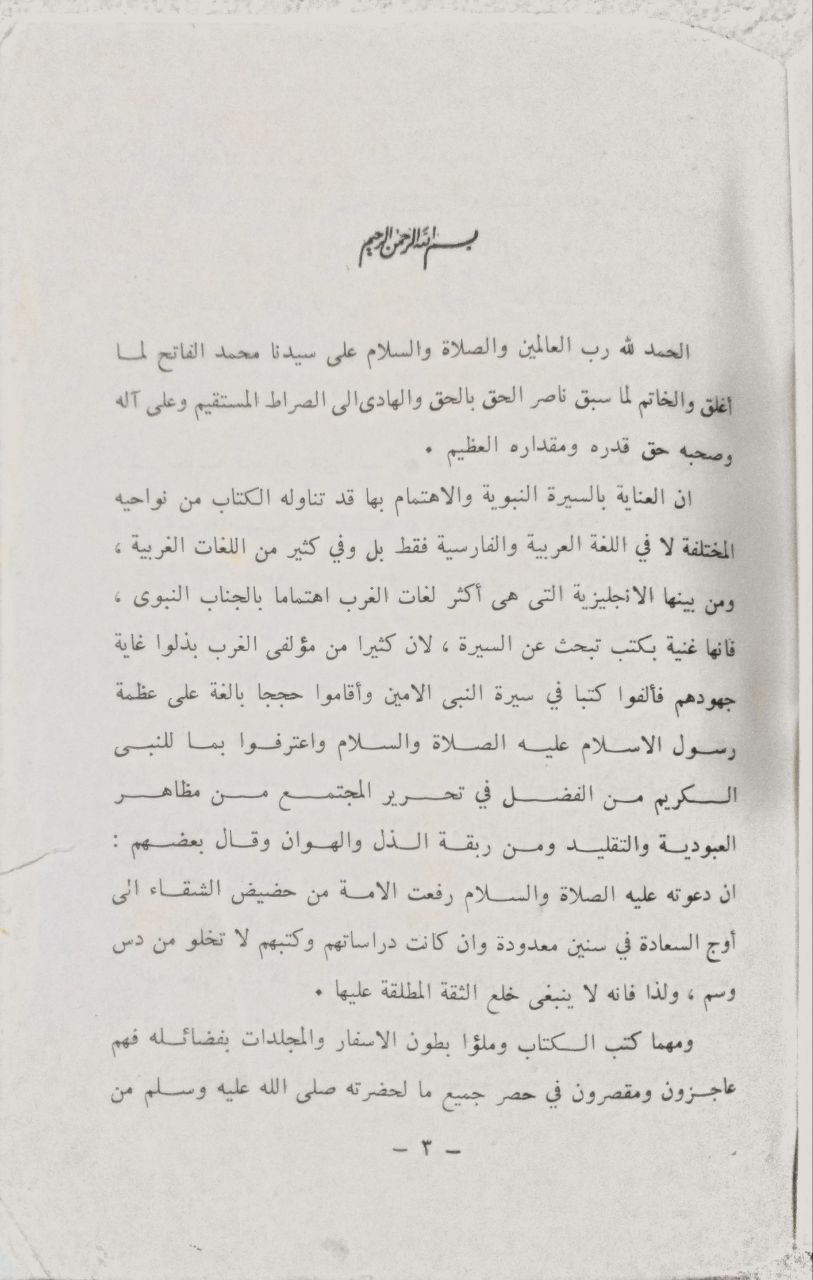 بسم الله الرحمن الرحيم
الحمد لله رب العالمين والصلاة والسلام على سيدنا محمد الفاتح لما
أغلق والخاتم لما سبق ناصر الحق بالحق والهادى الى الصراط المستقيم وعلى آله
وصحبه حق قدره ومقداره العظيم .
ان العناية بالسيرة النبوية والاهتمام بها قد تناوله الكتاب من نواحيه
المختلفة لا في اللغة العربية والفارسية فقط بل وفي كثير من اللغات الغربية ،
ومن بينها الانجليزية التى هى أكثر لغات الغرب اهتماما بالجناب النبوى ،
فانها غنية بكتب تبحث عن السيرة ، لان كثيرا من مؤلفى الغرب بذلوا غاية
جهودهم فألفوا كتبا في سيرة النبى الامين وأقاموا حججا بالغة على عظمة
رسول الاسلام عليه الصلاة والسلام واعترفوا بما للنبى
الكريم من الفضل في تحرير المجتمع من مظاهر
العبودية والتقليد ومن ربقة الذل والهوان وقال بعضهم :
ان دعوته عليه الصلاة والسلام رفعت الامة من حضيض الشقاء الى
أوج السعادة في سنين معدودة وان كانت دراساتهم وكتبهم لا تخلو من دس
وسم ، ولذا فانه لا ينبغى خلع الثقة المطلقة عليها .
ومهما كتب الكتاب وملؤا بطون الاسفار والمجلدات بفضائله فهم
عاجزون ومقصرون في حصر جميع ما لحضرته صلى الله عليه وسلم من
– ٣ –